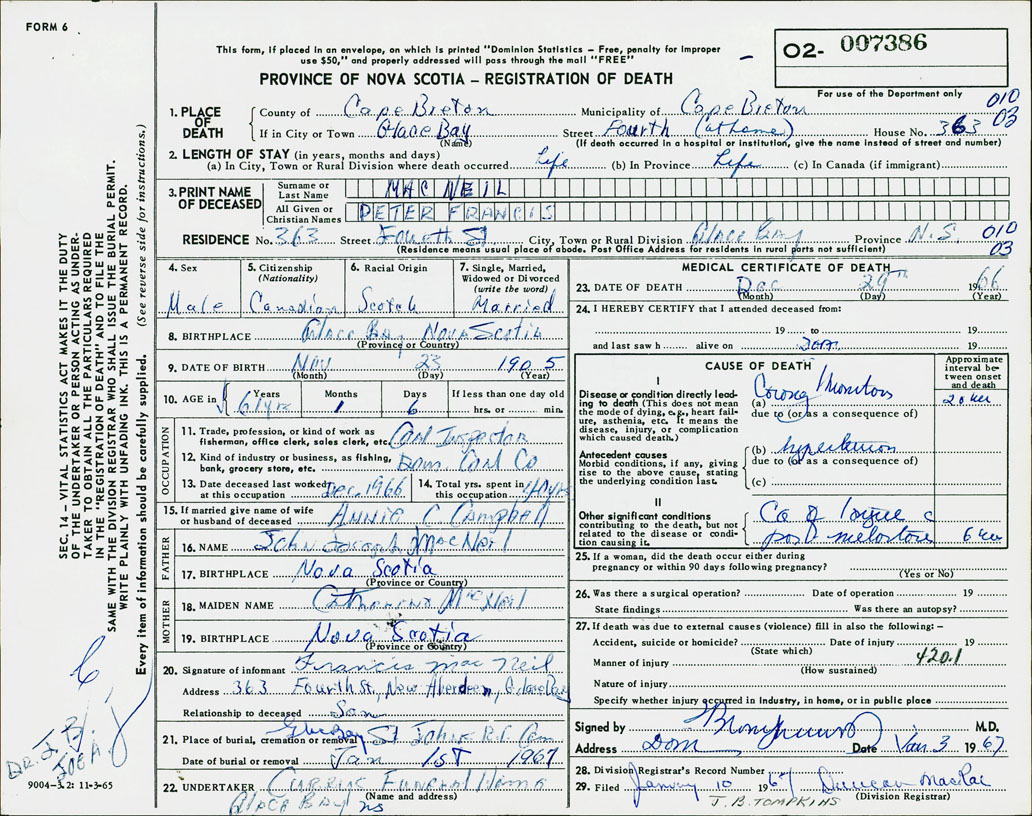 FORM 6
This form, if placed in an envelope, on which is printed "Dominion Statistics – Free, penalty for improper
use $50," and properly addressed will pass through the mail "FREE"
PROVINCE OF NOVA SCOTIA – REGISTRATION OF DEATH
O2- 007386
For use of the Department only
010
03
1. PLACE OF DEATH
County of Cape Breton Municipality of Cape Breton
If in City or Town Glace Bay (Name) Street Fourth (at home) House No. 363
(If death occurred in a hospital or institution, give the name instead of street and number)
2. LENGTH OF STAY (in years, months and days)
(a) In City, Town or Rural Division where death occurred Life (b) In Province Life (c) In Canada (if immigrant)
3. PRINT NAME OF DECEASED
Surname or Last Name MAC NEIL
All Given or Christian Names PETER FRANCIS
RESIDENCE No. 363 Street Fourth St City, Town or Rural Division Glace Bay Province N.S.
(Residence means usual place of abode. Post Office Address for residents in rural parts not sufficient)
010
03
4. Sex Male
5. Citizenship (Nationality) Canadian
6. Racial Origin Scotch
7. Single, Married, Widowed or Divorced (write the word) Married
8. BIRTHPLACE Glace Bay Nova Scotia
(Province or Country)
9. DATE OF BIRTH Nov 23 1905
(Month) (Day) (Year)
10. AGE in Years 61 yrs Months 1 Days 6 If less than one day old hrs. or min.
OCCUPATION
11. Trade, profession, or kind of work as fisherman, office clerk, sales clerk, etc. Coal Inspector
12. Kind of industry or business, as fishing, bank, grocery store, etc. Dom. Coal Co
13. Date deceased last worked at this occupation Dec. 1966
14. Total yrs. spent in this occupation 40 yrs
15. If married give name of wife or husband of deceased Annie C Campbell
FATHER
16. NAME John Joseph MacNeil
17. BIRTHPLACE Nova Scotia
(Province or Country)
MOTHER
18. MAIDEN NAME Catherine MacNeil
19. BIRTHPLACE Nova Scotia
(Province or Country)
20. Signature of informant Francis MacNeil
Address 363 Fourth St., New Aberdeen, Glace Bay
Relationship to deceased Son
21. Place of burial, cremation or removal Glace Bay St John's R.C. Cem
Date of burial or removal Jan 1ST 1967
22. UNDERTAKER Curries Funeral Home
(Name and address)
Glace Bay NS
MEDICAL CERTIFICATE OF DEATH
23. DATE OF DEATH Dec 29th 1966
(Month) (Day) (Year)
24. I HEREBY CERTIFY that I attended deceased from:
19 to 19
and last saw h alive on 19
CAUSE OF DEATH
Approximate interval between onset and death
I
Disease or condition directly leading to death (This does not mean the mode of dying, e.g., heart failure, asthenia, etc. It means the disease, injury, or complication which caused death.)
(a)
due to (or as a consequence of)
Antecedent causes
Morbid conditions, if any, giving rise to the above cause, stating the underlying condition last.
(b)
due to (or as a consequence of)
(c)
II
Other significant conditions contributing to the death, but not related to the disease or condition causing it.
25. If a woman, did the death occur either during pregnancy or within 90 days following pregnancy?
(Yes or No)
26. Was there a surgical operation? Date of operation 19
State findings Was there an autopsy?
27. If death was due to external causes (violence) fill in also the following: –
Accident, suicide or homicide? Date of injury 19
(State which)
Manner of injury 420.1
(How sustained)
Nature of injury
Specify whether injury occurred in industry, in home, or in public place
Signed by M.D.
Address Dom Date Jan. 3 1967
28. Division Registrar's Record Number
29. Filed January 10 1967 Duncan MacRae
(Division Registrar)
J. B. TOMPKINS
SEC. 14 – VITAL STATISTICS ACT MAKES IT THE DUTY
OF THE UNDERTAKER OR PERSON ACTING AS UNDERTAKER TO OBTAIN ALL THE PARTICULARS REQUIRED
IN THE "REGISTRATION OF DEATH" AND TO FILE THE
SAME WITH THE DIVISION REGISTRAR WHO SHALL ISSUE THE BURIAL PERMIT.
WRITE PLAINLY WITH UNFADING INK. THIS IS A PERMANENT RECORD.
Every item of information should be carefully supplied. (See reverse side for instructions.)
9004-3.2: 11-3-65